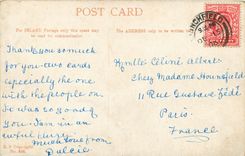 POST CARD
For INLAND Postage only this space may be used for communication
The ADDRESS only to be written
Thank you so much
for your two cards
especially the one
with the people on.
It was so good of
you. I am in an
awful hurry.
Much love from
Dulcie
Mlle Céline Albert
Chez Madame Hounsfield
11 Rue Gustave
Paris
France